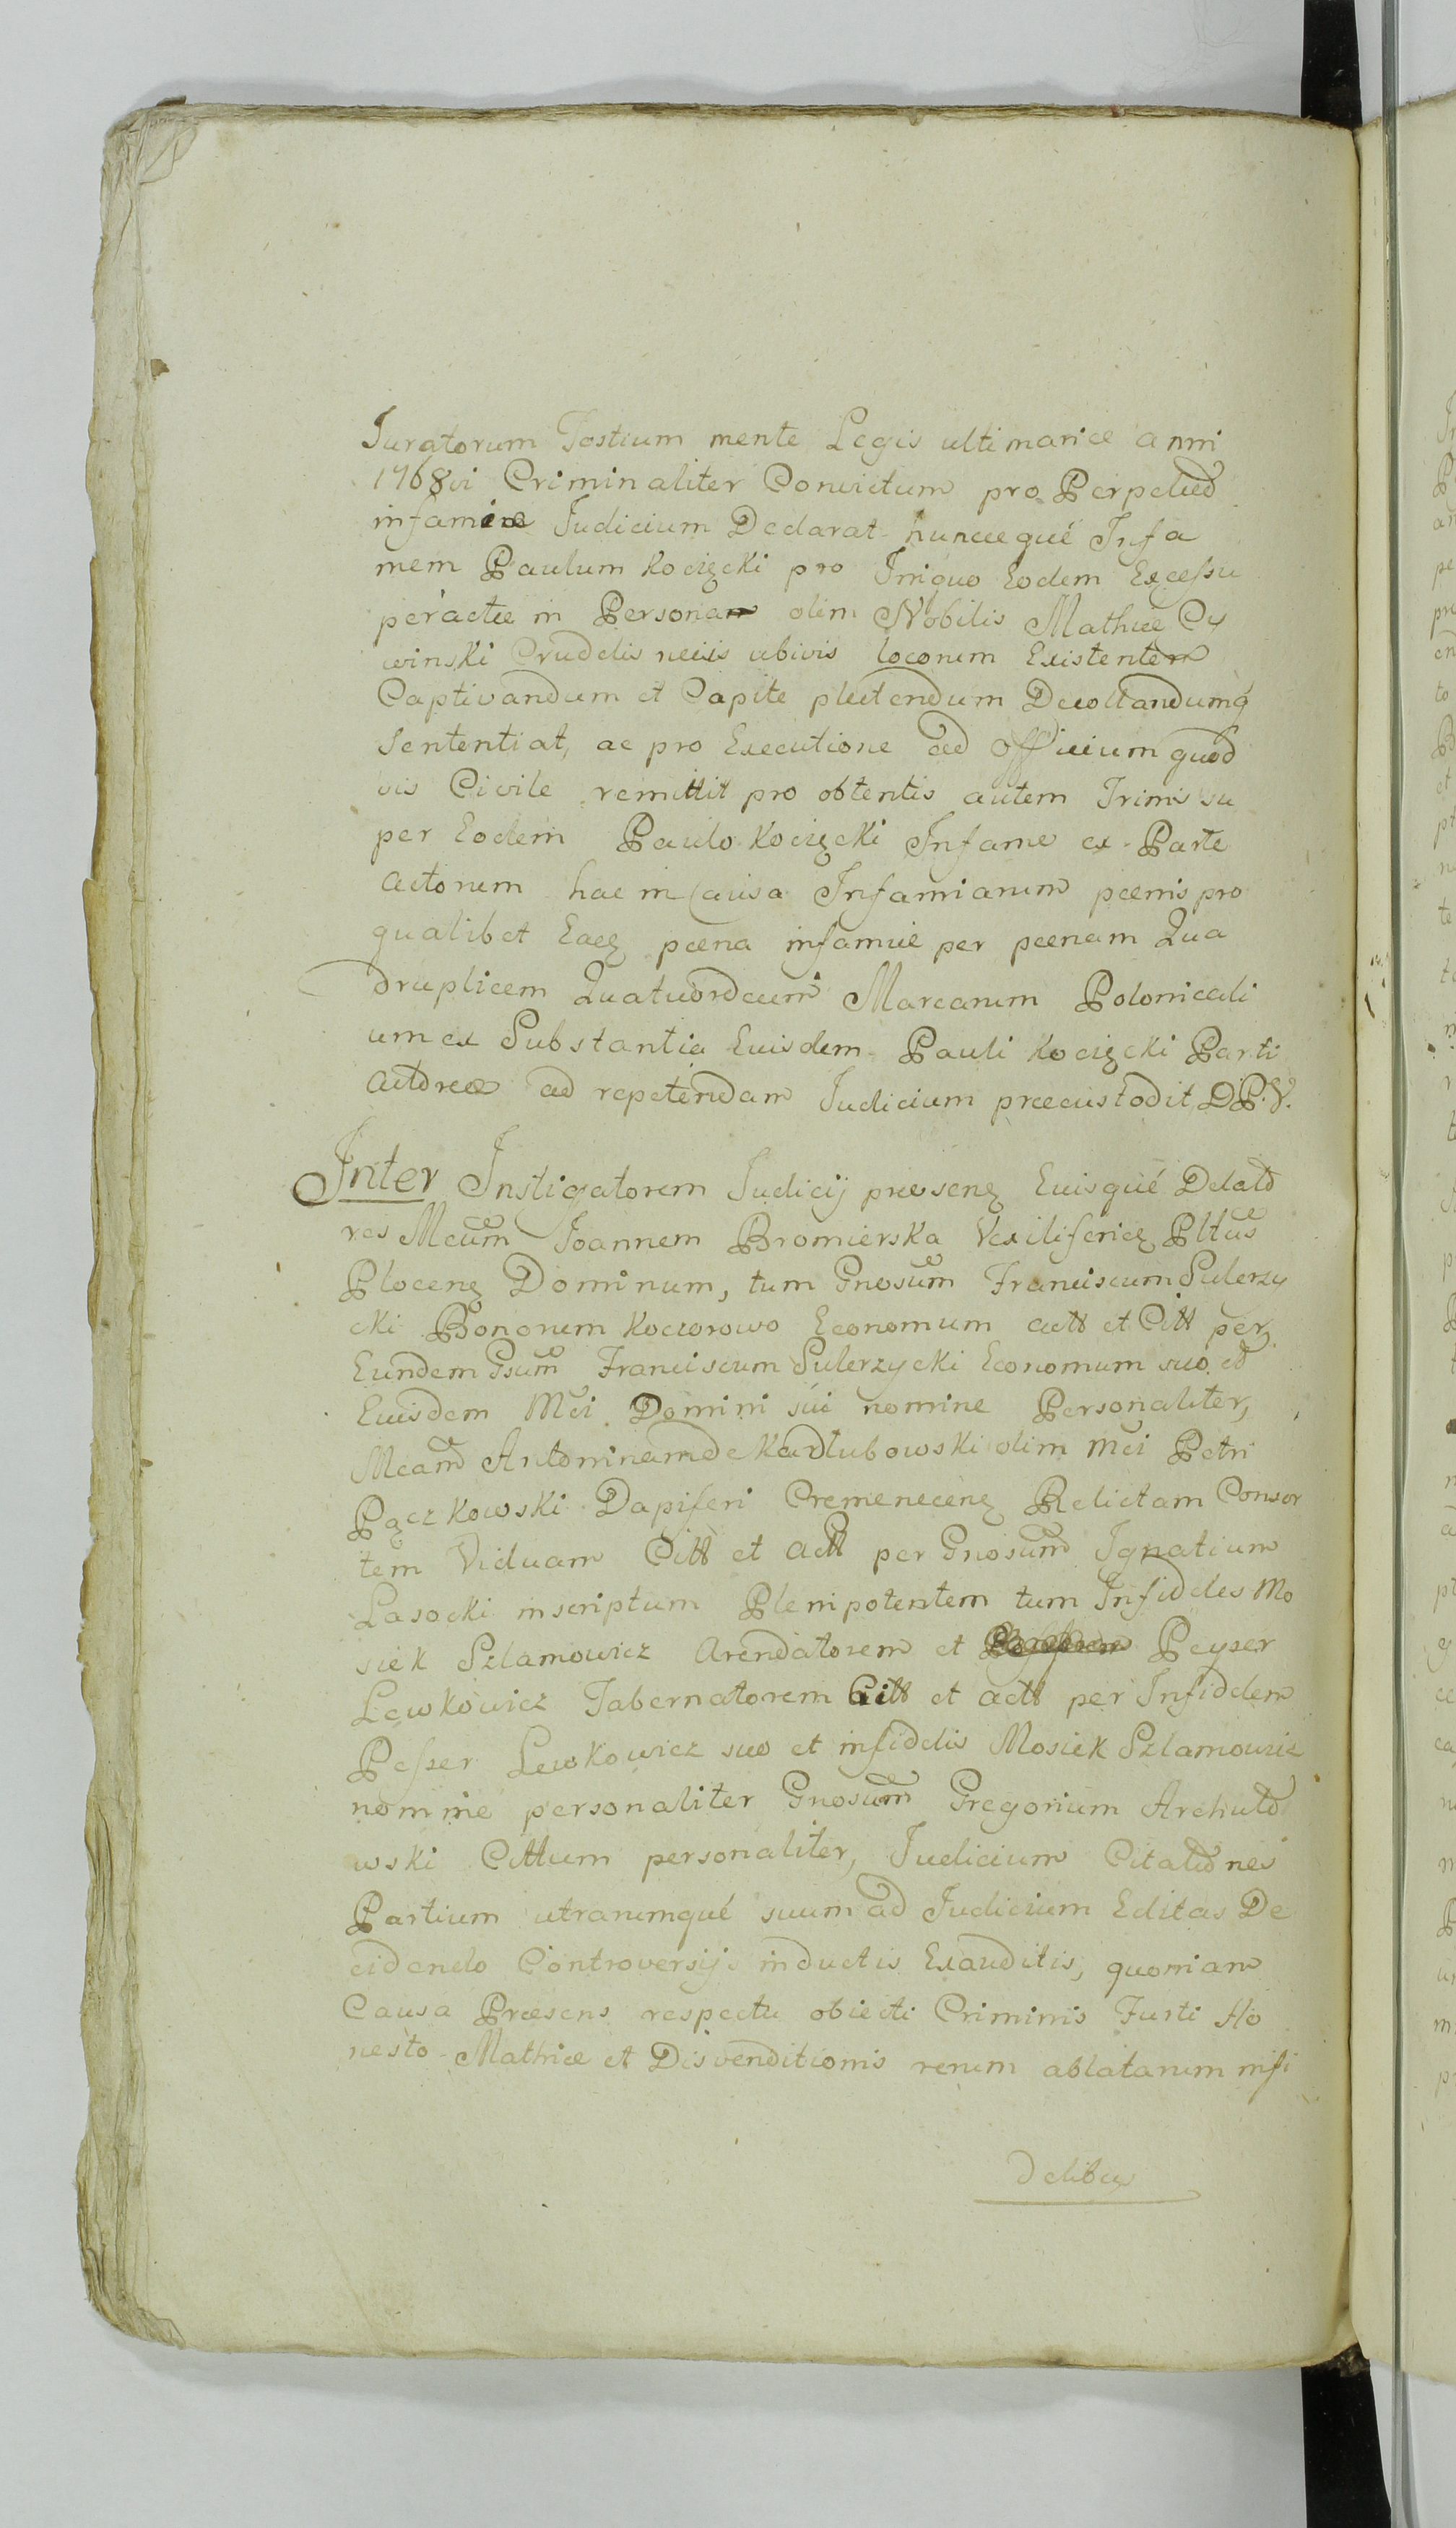 Juratorum Testium mente Legis ultimariæ anni
1768vi Criminaliter Convictum pro Perpetuo
infamiæ Judicium Declarat huncqué Infa
mem Paulum Kocięcki pro Iniquo Eodem Excessu
peractæ in Personam olim Nobilis Mathiæ Cy
winski Crudelis necis ubivis locorum Existentem
Captivandum et Capite plectendum Decollandumq́
Sententiat, ac pro Executione ad Officium quod
vis Civile remittit pro obtentis autem Trinis su
per Eodem Paulo Kocięcki Infame ex Parte
actorum hac in Causa Infamiarum pœnis pro
qualibet Eaꝗ pœna infamiæ per pœnam Qua
druplicem Quatuordecim Marcarum Polonicali
um ex Substantia Euisdem Pauli Kocięcki Parti
actoreæ ad repetendam Judicium præcustodit D.P.V.
Inter Instigatorem Judicij præsenꝗ Euisqué Delato
res Mcum Joannem Bromierska Vexiliferiꝗ Pltus
Plocenꝗ Dominum, tum Gnosum Franciscum Sulerzy
cki Bonorum Koczorowo Economum actt et Citt per
Eundem Gsum Franciscum Sulerzycki Economum suo et
Euisdem Mci Domini sui nomine Personaliter,
Mcam Antoninam de Kadłubowski olim Mci Petri
Pączkowski Dapiferi Cremenecenꝗ Relictam Consor
tem Viduam Citt et actt per Gnosum Ignatium
Lasocki inscriptum Plenipotentem tum Infideles Mo
siek Szlamowicz Arendatorem et Peyser
Lewkowicz Tabernatorem Citt et actt per Infidelem
Pesser Lewkowicz suo et infidelis Mosiek Szlamowicz
nomine personaliter Gnosum Gregorium Archuto
wski Cittum personaliter, Judicium Citationes
Partium utrarumqué suum ad Judicium Editas De
cidendo Controversijs inductis Exauditis, quoniam
Causa Præsens respectu obiecti Criminis Furti Ho
nesto Mathiæ et Disvenditionis rerum ablatarum infi
delibus